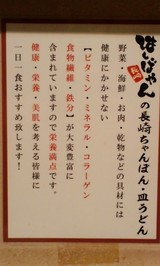 ばってん
の長崎ちゃんぽん・皿うどん
野菜・海鮮・お肉・乾物などの具材には
健康にかかせない
【ビタミン・ミネラル・コラーゲン
食物繊維・鉄分】が大変豊富に
含まれていますので栄養満点です。
健康・栄養・美肌を考える皆様に
一日一食おすすめ致します！